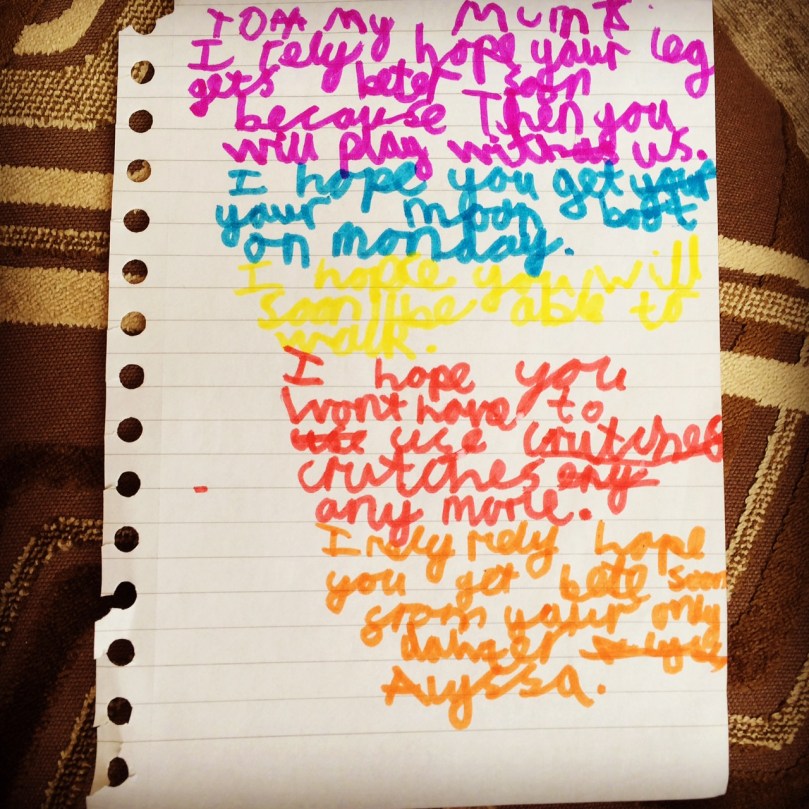 TO my Mum
I rely hope your leg
gets beter soon
because Then you
will play with us.
I hope you get your
your moon boot
on monday.
I hope you will
soon be able to
walk.
I hope you
wont have to
use crutches
crutches any
any more.
I rely rely hope
you get bete soon
from your only
dahter
Alyssa.